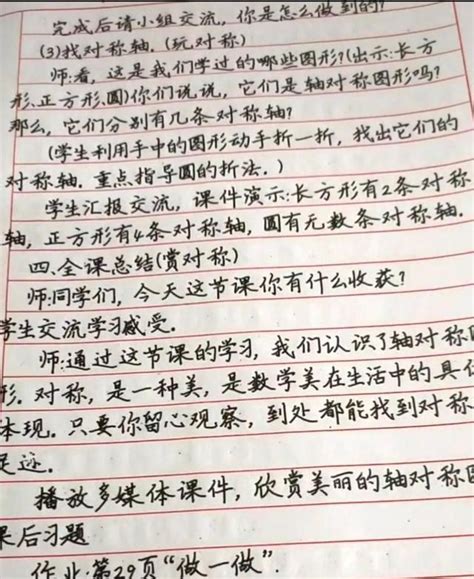 完成后请小组交流,你是怎么做到的?
(3)找对称轴.(玩对称)
师:看,这是我们学过的哪些图形?(出示:长方
形、正方形、圆)你们说说,它们是轴对称图形吗?
那么,它们分别有几条对称轴?
(学生利用手中的图形动手折一折,找出它们的
对称轴.重点指导圆的折法.)
学生汇报交流,课件演示:长方形有2条对称
轴,正方形有4条对称轴,圆有无数条对称轴.
四、全课总结(赏对称)
师:同学们,今天这节课你有什么收获?
学生交流学习感受.
师:通过这节课的学习,我们认识了轴对称
形,对称,是一种美,是数学美在生活中的具
体现.只要你留心观察,到处都能找到对称
足迹.
播放多媒体课件,欣赏美丽的轴对称
课后习题
作业:第29页“做一做”.